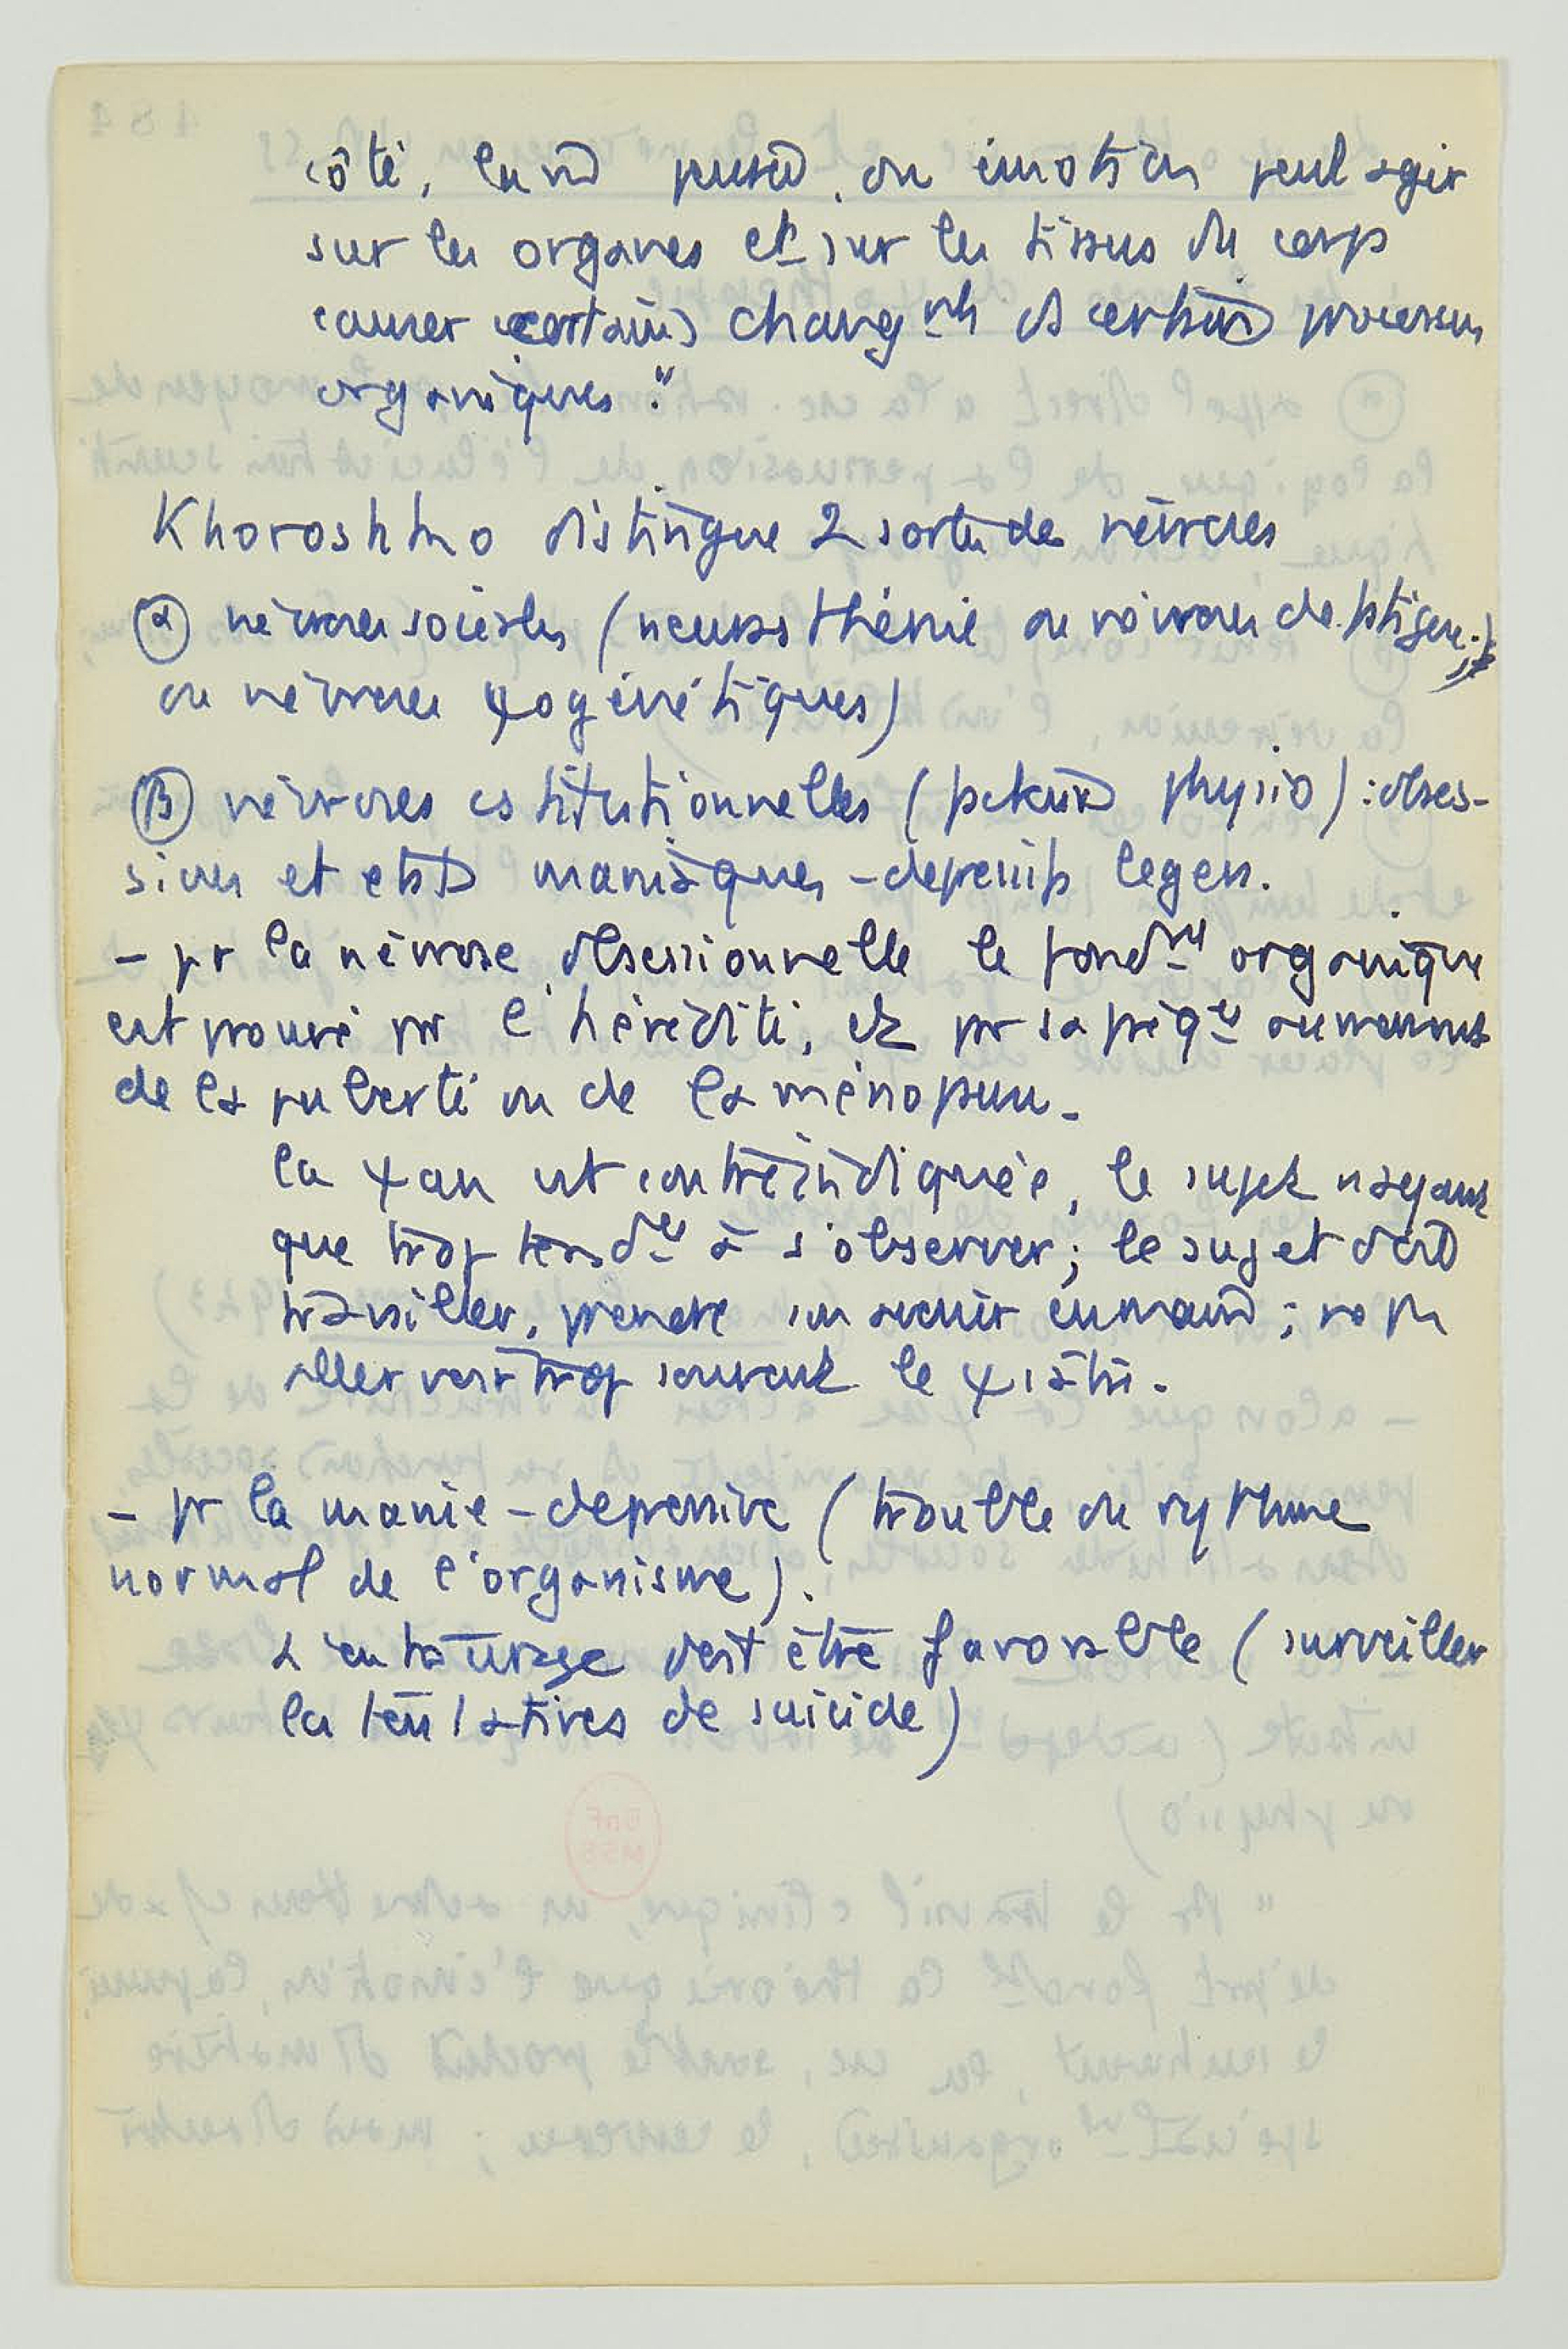 côté, la pensée, ou émotion peut agir
sur les organes et sur les tissus du corps
causer certains chang^nts ds certains processus
organiques."
Khoroshko distingue 2 sortes de névroses
α névroses sociales (neurasthénie ou névroses de fatigue;
ou névroses ψogénétiques)
β névroses cstitutionnelles (facteurs physio) : obses-
sions et états maniaques-dépressifs légers.
- pr la névrose obsessionnelle le fond^nt organique
est prouvé par l'hérédité, et par sa fréq^ce au moment
de la puberté ou de la ménopause.
la ψan est contreindiquée, le sujet n'ayant
que trop tend^ce à s'observer; le sujet doit
travailler, prendre son avenir en main; ne pas
aller voir trop souvent le ψiatre.
- pr la manie-dépressive (trouble du rythme
normal de l'organisme).
L'entourage doit être favorable (surveiller
les tentatives de suicide)